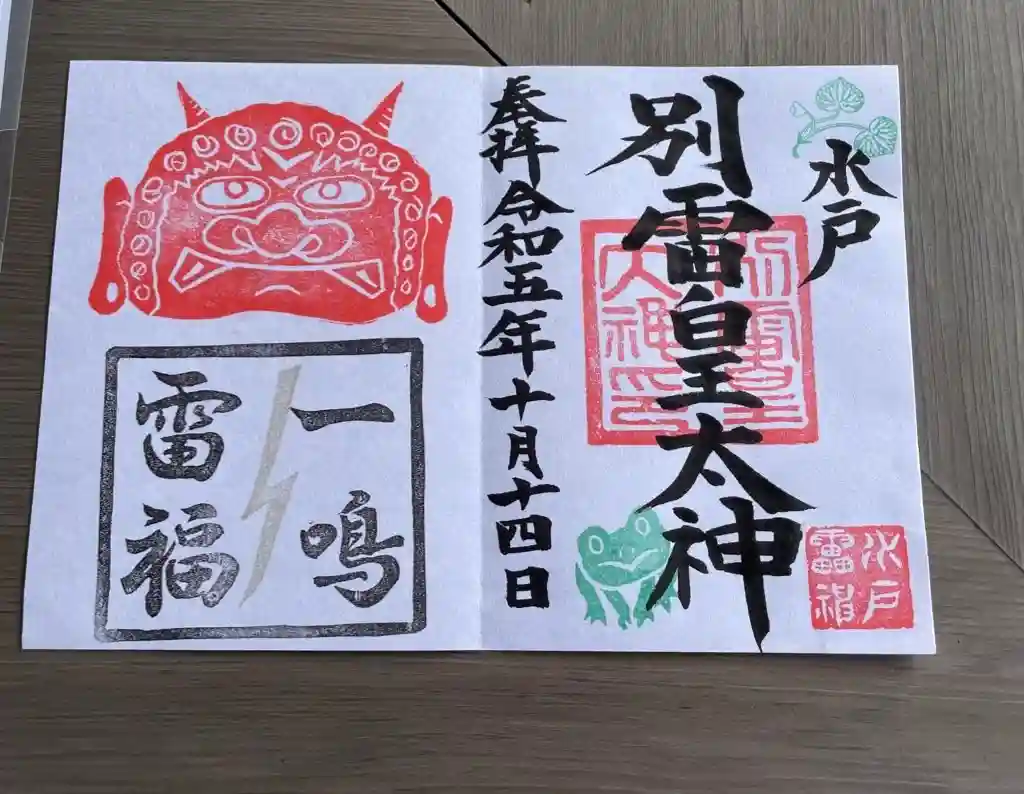 水戸
別雷皇太神
別雷皇
太神印
水戸
雷神
奉拝 令和五年十月十四日
一鳴
雷福